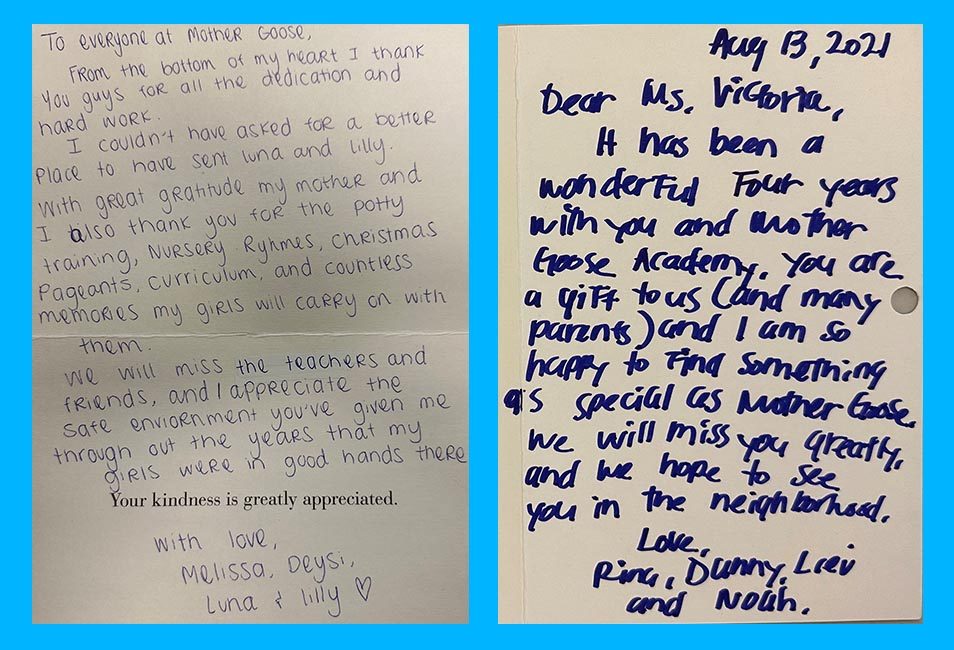 To everyone at Mother Goose,
From the bottom of my heart I thank
you guys for all the dedication and
hard work.
I couldn't have asked for a better
place to have sent Luna and Lilly.
With great gratitude my mother and
I also thank you for the potty
training, Nursery Ryhmes, Christmas
Pageants, Curriculum, and countless
memories my girls will carry on with
them.
We will miss the teachers and
friends, and I appreciate the
safe enviornment you've given me
through out the years that my
girls were in good hands there
Your kindness is greatly appreciated.
With love,
Melissa, Deysi,
Luna & Lilly ♡
Aug 13, 2021
Dear Ms. Victoria,
It has been a
wonderful Four years
with you and Mother
Goose Academy. You are
a gift to us (and many
parents) and I am so
happy to Find something
as special as Mother Goose.
We will miss you greatly,
and we hope to see
you in the neighborhood.
Love,
Rina, Danny, Liev
and Noah.